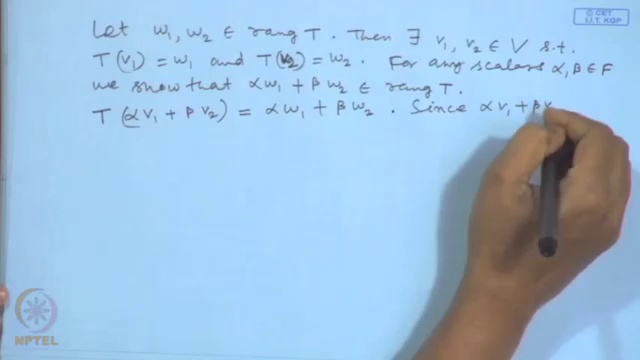 © CET
I.I.T. KGP
Let w₁, w₂ ∈ rang T. Then ∃ v₁, v₂ ∈ V s.t.
T(v₁) = w₁ and T(v₂) = w₂. For any scalars α, β ∈ F
we show that αw₁ + βw₂ ∈ rang T.
T(αv₁ + βv₂) = αw₁ + βw₂. Since αv₁ + βv
NPTEL